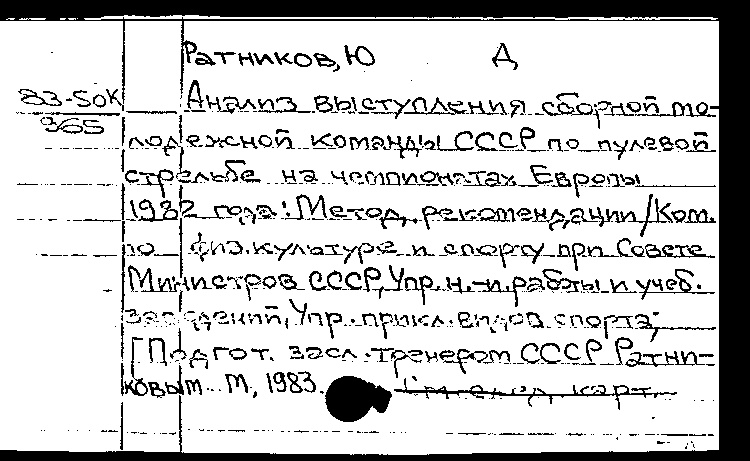 Ратников, Ю Д
83-5ОК
965
Анализ выступления сборной мо-
лодежной команды СССР по пулевой
стрельбе на чемпионатах Европы
1982 года: Метод. рекомендации/Ком.
по физ.культуре и спорту при Совете
Министров СССР, Упр. н.-и. работы и учеб.
заведений, Упр. прикл. видов спорта;
[Подгот. засл. тренером СССР Ратни-
ковым М, 1983.
карт.